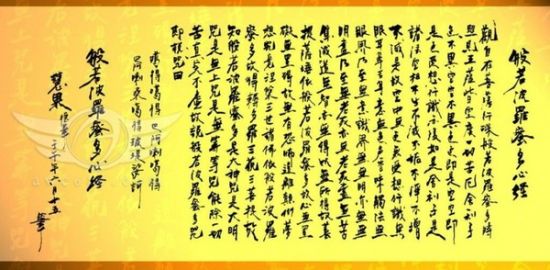 般若波羅蜜多心經
觀自在菩薩行深般若波羅蜜多時
照見五蘊皆空度一切苦厄舍利子
色不異空空不異色色即是空空即
是色受想行識亦復如是舍利子是
諸法空相不生不滅不垢不淨不增
不減是故空中無色無受想行識無
眼耳鼻舌身意無色聲香味觸法無
眼界乃至無意識界無無明亦無無
明盡乃至無老死亦無老死盡無苦
集滅道無智亦無得以無所得故菩
提薩埵依般若波羅蜜多故心無罣
礙無罣礙故無有恐怖遠離顛倒夢
想究竟涅槃三世諸佛依般若波羅
蜜多故得阿耨多羅三藐三菩提故
知般若波羅蜜多是大神咒是大明
咒是無上咒是無等等咒能除一切
苦真實不虛故說般若波羅蜜多咒
即說咒曰
般若波羅蜜多心經